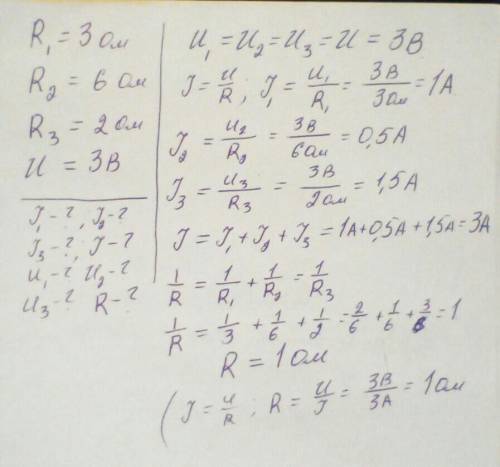 R₁ = 3 Ом
R₂ = 6 Ом
R₃ = 2 Ом
U = 3В
J₁ - ? , J₂ - ?
J₃ - ? , J - ?
U₁ - ? U₂ - ?
U₃ - ? R - ?
U₁ = U₂ = U₃ = U = 3В
J = U/R ; J₁ = U₁/R₁ = 3В/3Ом = 1А
J₂ = U₂/R₂ = 3В/6Ом = 0,5А
J₃ = U₃/R₃ = 3В/2Ом = 1,5А
J = J₁ + J₂ + J₃ = 1А + 0,5А + 1,5А = 3А
1/R = 1/R₁ + 1/R₂ = 1/R₃
1/R = 1/3 + 1/6 + 1/2 = 2/6 + 1/6 + 3/6 = 1
R = 1 Ом
( J = U/R ; R = U/J = 3В/3А = 1 Ом